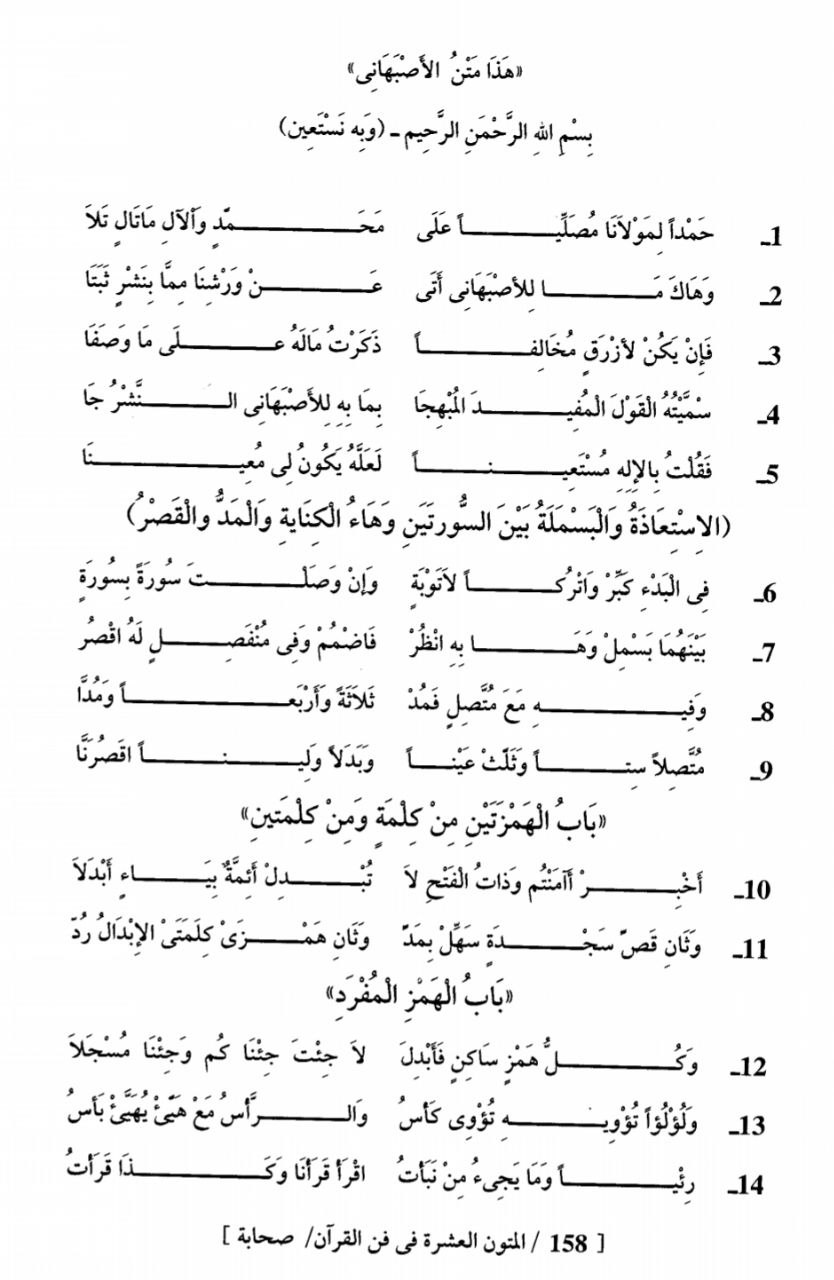 «هَذَا مَتْنُ الأَصْبَهَانِى»
بِسْمِ اللهِ الرَّحْمَنِ الرَّحِيمِ ـ (وَبِهِ نَسْتَعِين)
1ـ حَمْداً لِمَوْلَانَا مُصَلِّيـــاً عَلَى مَحَـــمَّدٍ وَالْآلِ مَاتَالٍ تَلاَ
2ـ وَهَاكَ مَـــا لِلأصْبَهَانِى أَتَى عَـــنْ وَرْشِنَا مِمَّا بِنَشْرٍ ثَبَتَا
3ـ فَإِنْ يَكُنْ لأَزْرَقٍ مُخَالِفـــاً ذَكَرْتُ مَالَهُ عـــلَى مَا وَصَفَا
4ـ سْمَّيْتُهُ الْقَوْلَ الْمُفِيـــدَ المُبْهِجَا بِمَا بِهِ لِلأَصْبَهَانِى الـــنَّشْرُ جَا
5ـ فَقُلْتُ بِالإِلهِ مُسْتَعِيـــنـــاً لَعَلَّهُ يَكُونُ لِى مُعِيـــنَا
(الاِسْتِعَاذَةُ وَالْبَسْمَلَةُ بَيْنَ السُّورتَيَنِ وَهَاءُ الْكِنَايةِ وَالْمَدُّ والْقَصْرُ)
6ـ فِى الْبَدْءِ كَبِّرْ وَاتْرُكـــاً لاَتَوْبَةٍ وَإنْ وَصَلْـــتَ سُورَةً بِسُورَةٍ
7ـ بَيْنَهُمَا بَسْمِلْ وَهَـــا بِهِ انْظُرْ فَاضْمُمْ وَفِى مُنْفَصِـــلٍ لَهُ اقْصُر
8ـ وَفِيـــهِ مَعَ مُتَّصِلٍ فَمُدْ ثَلاَثَةً وَأَرْبَعـــاً وَمُدَّا
9ـ مُتَّصِلاً سِتـــاً وَثَلِّثْ عَيْنـــاً وَبَدَلاً وَلِيـــنـــاً اقْصُرَنَّا
«بَابُ الْهَمْزَتَيْنِ مِنْ كِلْمَةٍ وَمِنْ كِلْمَتَينِ»
10ـ أَخْبِـــرْ أَآمَنْتُم وَذَاتُ الْفَتْحِ لاَ تُبْـــدِلْ أَئِمَّةٌ بِيَـــاءٍ أَبْدَلاَ
11ـ وَثَانِ قَصِّ سَجْـــدَةٍ سَهِّلْ بِمَدِّ وَثَانِ هَمْـــزَىْ كِلَمَتَىْ الإِبْدَالُ رُدّ
«بَابُ الْهَمْزِ الْمُفْرَدِ»
12ـ وَكُـــلُّ هَمْزٍ سَاكِنٍ فَأَبْدِلَ لاَ جِئْتَ جِئْنَا كُم وَجِئْنَا مُسْجَلاَ
13ـ وَلُؤْلُؤاً تُؤْوِيـــهِ تُؤْوِى كَأسُ وَالـــرَّأسُ مَعْ هَيِّئْ يُهَيَّئْ بَأسُ
14ـ رِئْيـــاً وَمَا يَجِىءُ مِنْ نَبَأتُ اقْرَأ قَرَأنَا وَكَـــذَا قَرَأتُ
[ 158 / المتون العشرة فى فن القرآن/ صحابة ]